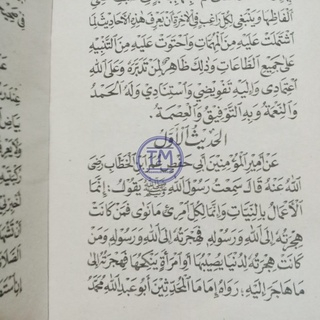 ألفاظها وينبغي لكل راغب في الآخرة أن يعرف هذه الأحاديث لما
اشتملت عليه من المهمات واحتوت عليه من التنبيه
على جميع الطاعات وذلك ظاهر لمن تدبره وعلى الله
اعتمادي وإليه تفويضي واستنادي وله الحمد
والنعمة وبه التوفيق والعصمة.
الحديث الأول
TM
عن أمير المؤمنين أبي حفص عمر بن الخطاب رضي
الله عنه قال سمعت رسول الله ﷺ يقول: إنما
الأعمال بالنيات وإنما لكل امرئ ما نوى فمن كانت
هجرته إلى الله ورسوله فهجرته إلى الله ورسوله ومن
كانت هجرته لدنيا يصيبها أو امرأة ينكحها فهجرته إلى
ما هاجر إليه. رواه إماما المحدثين أبو عبد الله محمد